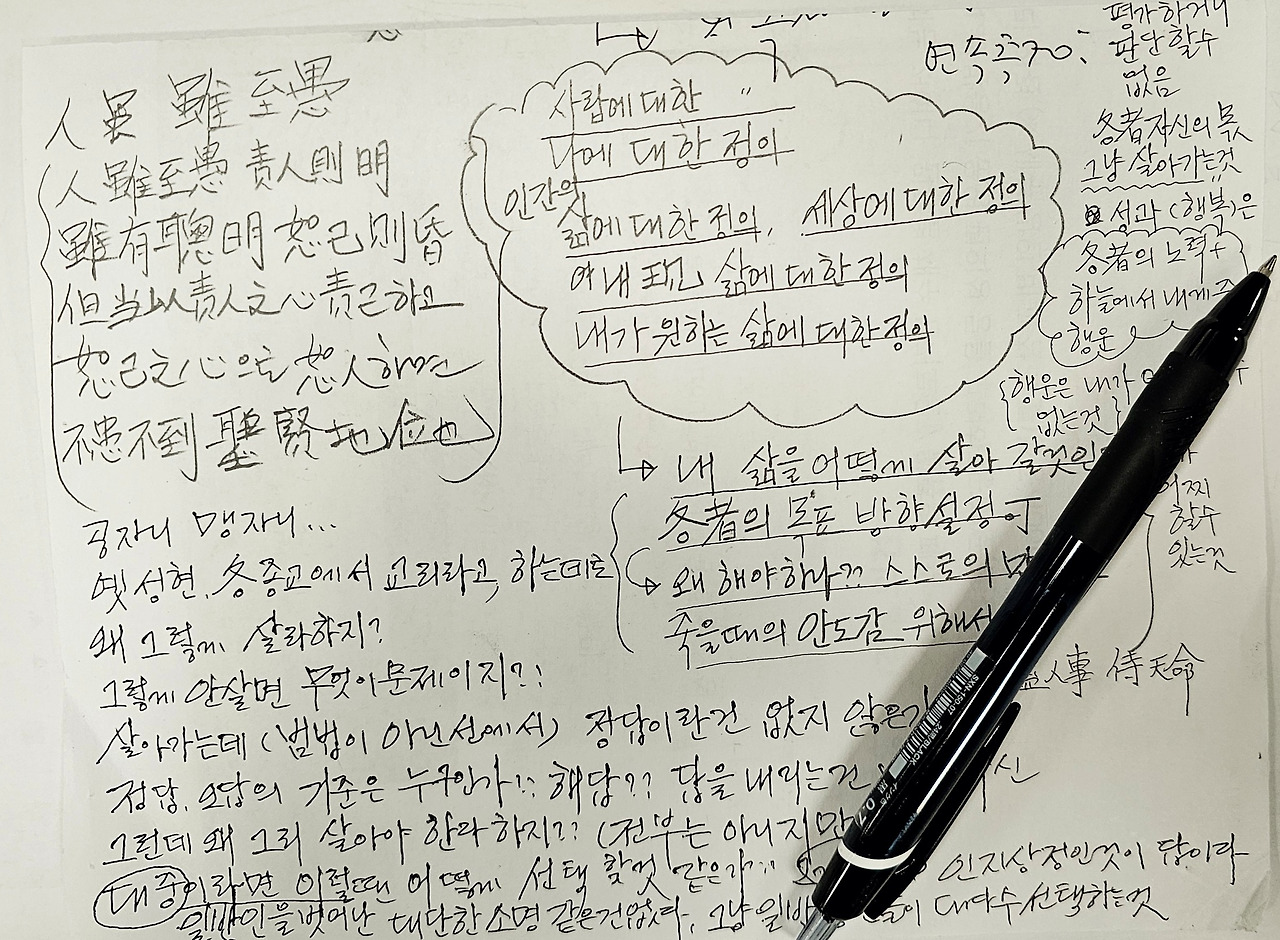 人 虽 雖 至愚
人雖至愚 責人則明
雖有聰明 恕己則昏
但当以責人之心責己하고
恕己之心으로 恕人하면
不患不到 聖賢地位也
사람에 대한 〃
나에 대한 정의
인간의
삶에 대한 정의, 세상에 대한 정의
내 삶에 대한 정의
내가 원하는 삶에 대한 정의
연속측정:
평가하거나
판단할수
없음
各者자신의 몫
그냥 살아가는것
성과(행복)은
各者의 노력+
하늘에서 내게 주
행운
{행운은 내가
없는것}
어찌
할수
있는것
내 삶을 어떻게 살아 갈것인
各者의 목표 방향설정
왜 해야하나?? 스스로의
죽을때의 안도감 위해서
人事 待天命
공자니 맹자니...
옛 성현, 各종교에서 교리라고 하는데로
왜 그렇게 살라하지?
그렇게 안살면 무엇이 문제이지?!
살아가는데 (범법이 아닌선에서) 정답이란건 없지 않은가
정답, 오답의 기준은 누구인가!! 해답?? 답을 내리는건 신
그런데 왜 그리 살아야 한다 하지?? (전부는 아니지만
대중이라면 이럴땐 어떻게 선택 할것 같은가?? 인지상정인것이 답이다
일반인을 벗어난 대단한 소명 같은건 없다, 그냥 일반 들이 대다수 선택하는것